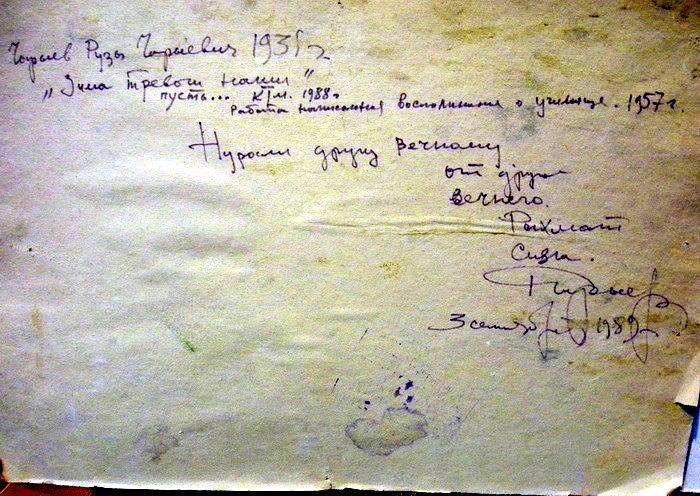 Чарыев Рузы Чарыевич 1931 г.
„Зима тревоги нашей"
пусть... к/м. 1988 г.
Работа написанная воспоминание о училище. 1957 г.
Нурали другу вечному
от друга
вечного.
Рахмат
Сизга.
3 сентябр 1989 г.